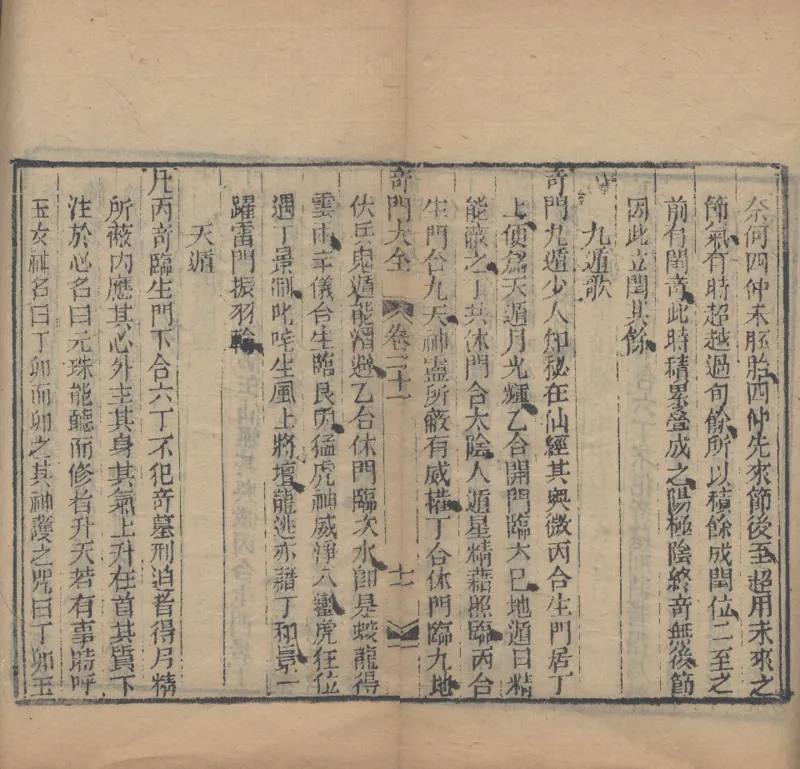 奈何四仲未胚胎四仲先來節後至超用未來之
節氣有時超越過旬餘所以積餘成閏位二至之
前有閏竒此時積累叠成之陽極陰終竒無後節
因此立閏其餘
九遁歌
竒門九遁少人知秘在仙經其奥微丙合生門居丁
上便爲天遁月光輝乙合開門臨六巳地遁日精
能蔽之丁共休門合太陰人遁星精藉照臨丙合
生門合九天神靈所蔽有威權丁合休門臨九地
竒門大全 卷二十一 十一
伏兵鬼遁能潛避乙合休門臨次水卽是蛟龍得
雲雨辛儀合生臨艮丙猛虎神威淨八巒虎狂位
遇丁景測叱咤生風上將壇龍逃亦藉丁和景一
躍雷門振羽翰
天遁
凡丙竒臨生門下合六丁不犯竒墓刑迫者得月精
所蔽内應其心外主其身其氣上升在首其質下
注於心名曰元珠能聽而修者升天若有事時呼
玉女神名曰丁卯而卯之其神護之咒曰丁卯玉